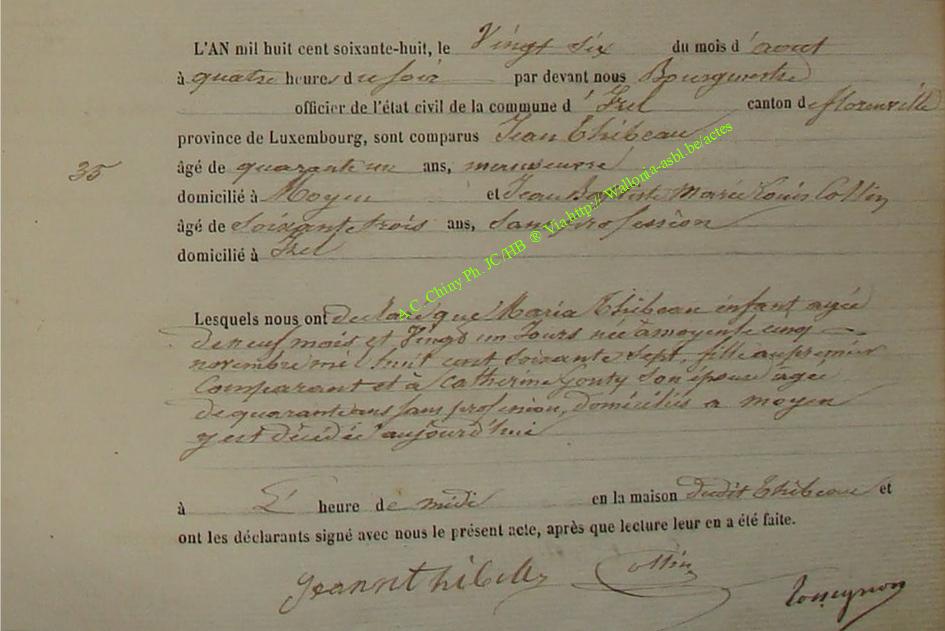 L'AN mil huit cent soixante-huit, le Vingt six du mois d'aout
à quatre heures du soir par devant nous Bourgmestre
officier de l'état civil de la commune d'Izel canton de florenville
province de Luxembourg, sont comparus Jean Thibeau
35 âgé de quarante un ans, manoeuvre
domicilié à Moyen et Jean Baptiste Marie Louis Collin
âgé de soixante trois ans, sans profession
domicilié à Izel
Lesquels nous ont declaré que Maria Thibeau enfant agée
de neuf mois et Vingt un Jours née à moyen le cinq
novembre mil huit cent soixante sept, fille au premier
Comparant et à Catherine Gouty son épouse agée
de quarante ans sans profession, domiciliés a moyen
y est décédée aujourd'hui
à L' heure de midi en la maison dudit Thibeau et
ont les déclarants signé avec nous le présent acte, après que lecture leur en a été faite.
Collin
A.C. Chiny Ph. JC/HB ® Via http://Wallonia-asbl.be/actes